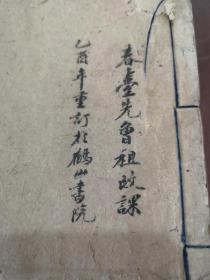 春臺先曾祖課
乙酉年重訂扵鶴山書院